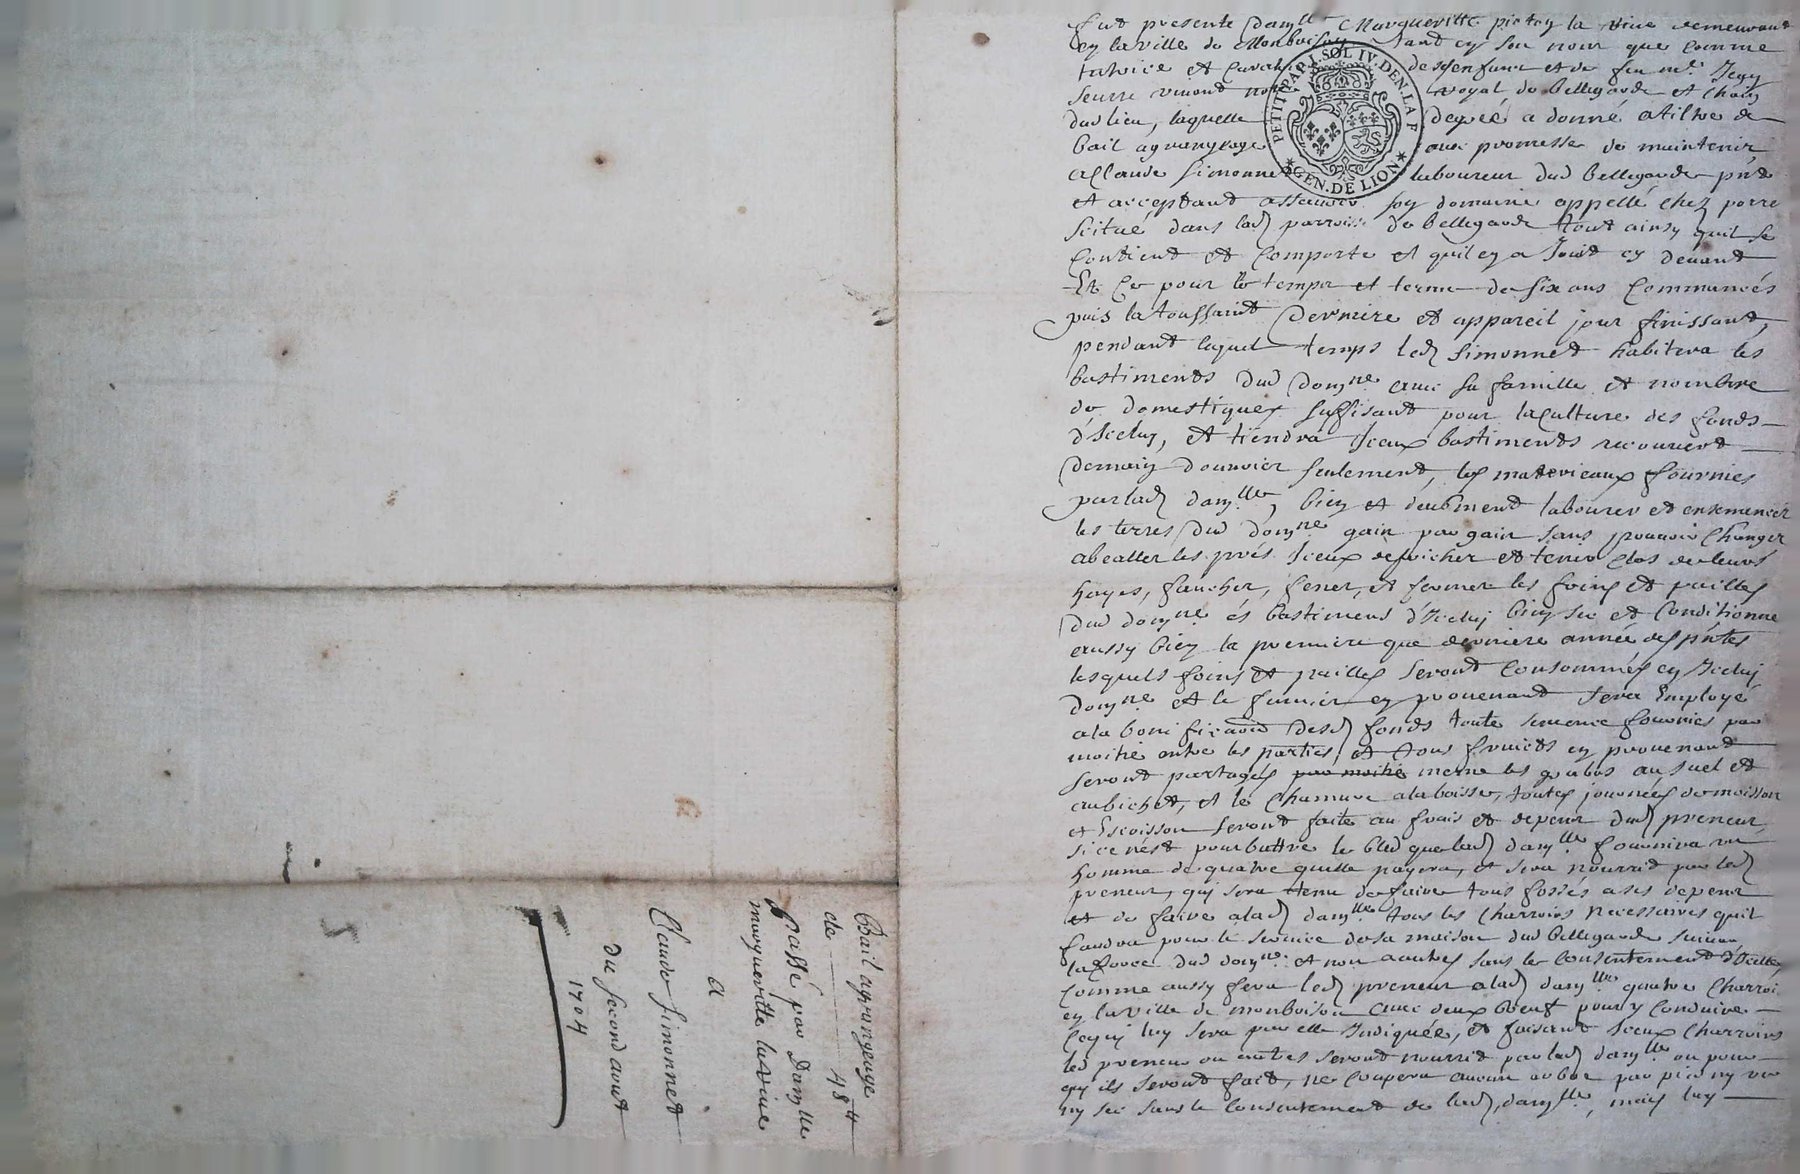 fut presente damlle Margueritte la vive demeurant
en la ville de Monboison tant en son nom que comme
tutrice et des enfans et de feu me
royal de bellegarde et
dud lieu, laquelle a donné a titre de
bail a grangeage avec promesse de maintenir
a Claude simonnet laboureur dud bellegarde pnt
et acceptant assavoir son domaine appellé chez porre
scitué dans lad parroisse de bellegarde tout ainsy quil se
contient et comporte et quil en a jouit cy devant
Et ce pour le temps et terme de six ans commancés
puis la toussaint derniere et a pareil jour finissant,
pendant lequel temps led simonnet habitera les
bastiments dud domne avec sa famille et nombre
de domestiques suffisant pour la culture des fonds
d'Iceluy, et tiendra Iceux bastiments recouvert
de main d'ouvrier seulement, les materieaux fournies
par lad damlle, bien et deubment labourer et ensemencer
les terres dud domne gain par gain sans pouvoir changer
les prés Iceux et tenir clos de leurs
hayes, faucher, fener, et fermer les foins et pailles
dud domne és bastimens d'Iceluy bien sec et conditionné
aussy bien la premiere que derniere année des pntes
lesquels foins et pailles seront consommés en Iceluy
domne et le fumier en provenant sera Employé
a la bonificaon desd fonds toute semence fournies par
moitié entre les parties, et tous fruicts en provenant
seront partagés par moitié mesme les gerbes au suel et
au bichet, et le chanvre a la boisse, toutes journées de moisson
et Escoisson seront faite au frais et depens dud preneur,
si ce nest pour battre le bled que lad damlle fournira un
homme de quatre quelle payera, et sera nourrit par led
preneur, qui sera tenu de faire tous fossés a ses depens
et de faire a lad damlle tous les charrois necessaires quil
faudra pour le service de sa maison dud bellegarde suivant
la force dud domne et non autres sans le consentement d'Icelle,
comme aussy fera led preneur a lad damlle quatre charrois
en la ville de monboison avec deux boeuf pour y conduire
ce qui luy sera par elle Indiquée, et faisant Iceux charrois
led preneur ou autres seront nourrit par lad damlle ou pour
qui ils seront fait, ne coupera aucun arbre par pied ny
ny sec sans le consentement de lad damlle, mais luy
PETIT PAP. 1. SOL IV. DEN. LA F
GEN. DE LION
Bail a grangeage
de 48tt
Passé par Damlle
margueritte la vive
a
Claude simonnet
du second aout
1704